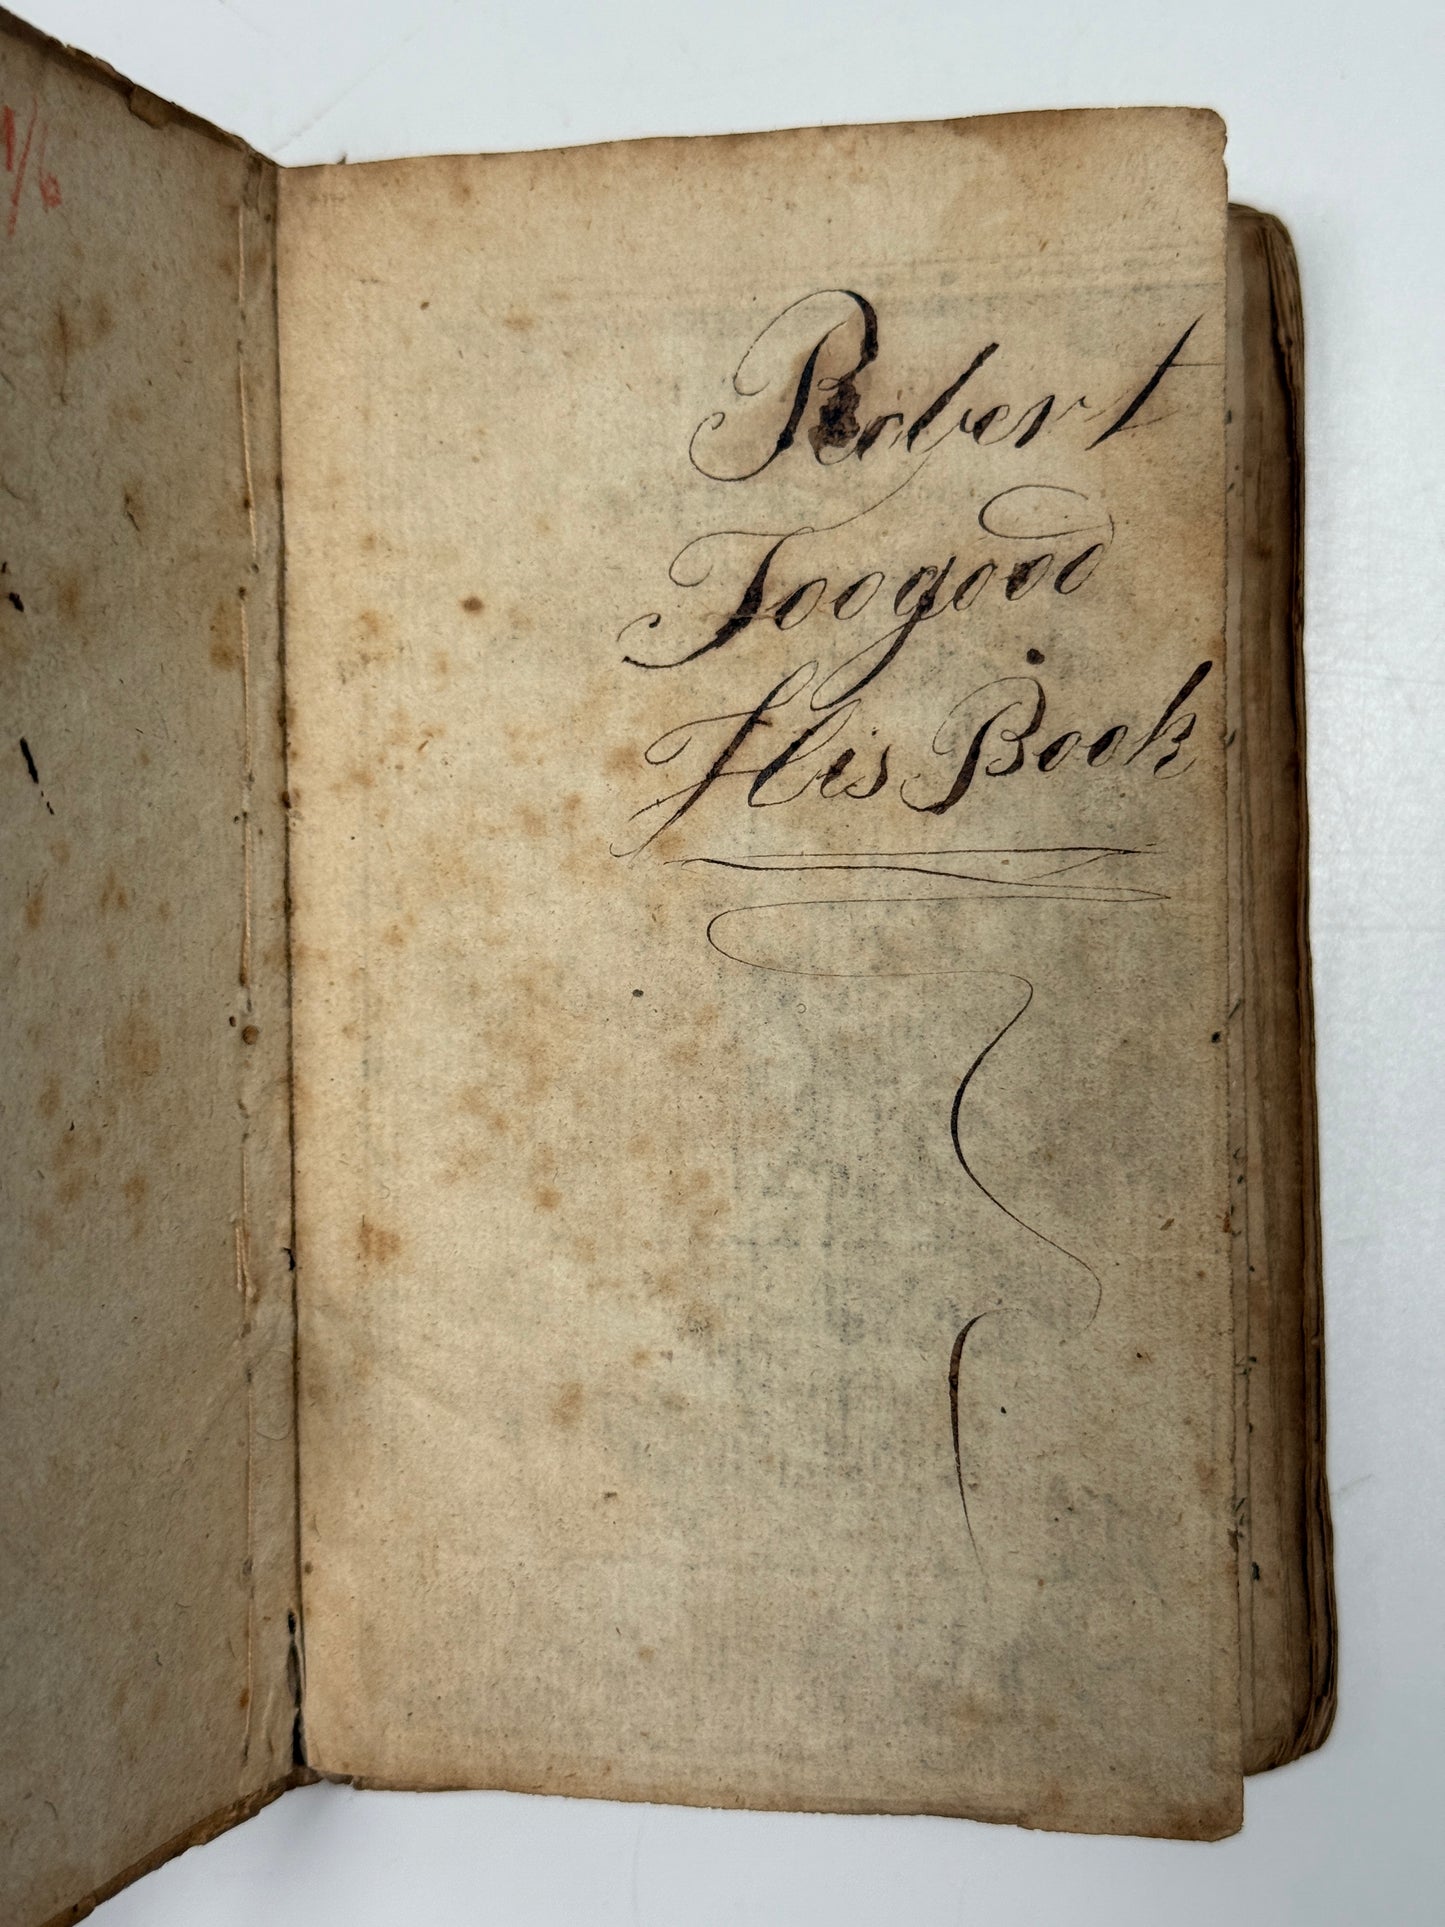 1/6
Robert
Toogood
His Book